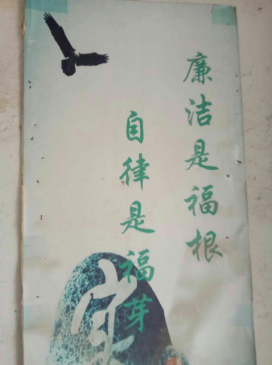 廉洁是福根
自律是福芽